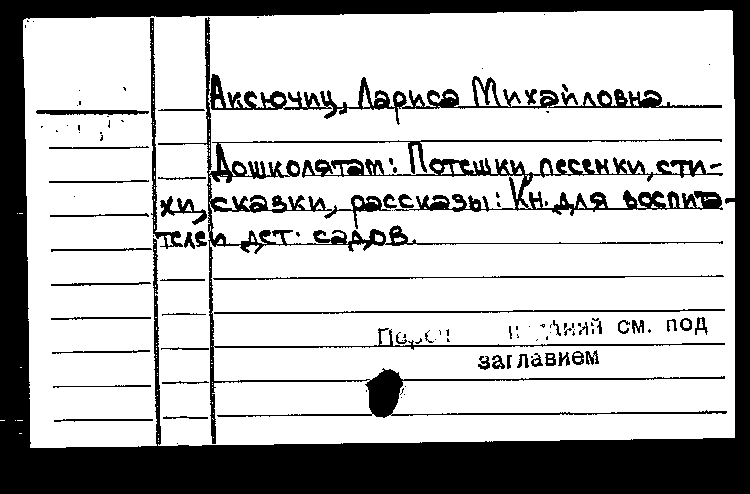 Аксючиц, Лариса Михайловна.
Дошколятам: Потешки, песенки, сти-
хи, сказки, рассказы: Кн. для воспита-
телей дет. садов.
см. под
заглавием